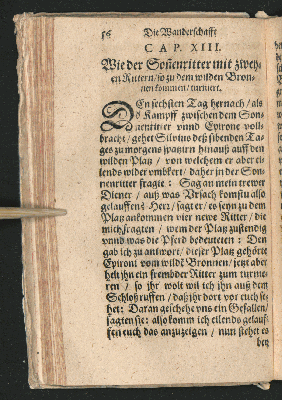 56 Die Wanderschafft
CAP. XIII.
Wie der Soñenritter mit zwey-
en Rittern/ so zu dem wilden Bron-
nen kommen/ turniert.
DEn sechsten Tag hernach/ als
d Kampff zwischen dem Son-
nenritter vnnd Epirone voll-
bracht/ gehet Silvius deß sibenden Ta-
ges zu morgens spatzirn hinauß auff den
wilden Platz/ von welchem er aber ei-
lends wider vmbkert/ daher in der Son-
nenritter fragte: Sag an mein trewer
Diener/ auß was Vrsach komstu also
geläuffen? Herr/ sagt er/ es seyn zu dem
Platz ankommen vier newe Ritter/ die
mich fragten/ wem der Platz zustendig
vnnd was die Pferd bedeuteten: Den
gab ich zu antwort/ dieser Platz gehöre
Epironi vom wildē Bronnen/ jetzt aber
helt ihn ein frembder Ritter zum turnie-
ren/ so ihr wolt wil ich ihn auß dem
Schloß ruffen/ daß ihr dort vor euch se-
het: Daran geschehe vns ein Gefallen/
sagten sie: also kom ich eilends gelauf-
fen euch das anzuzeigen/ nun stehet es
bey